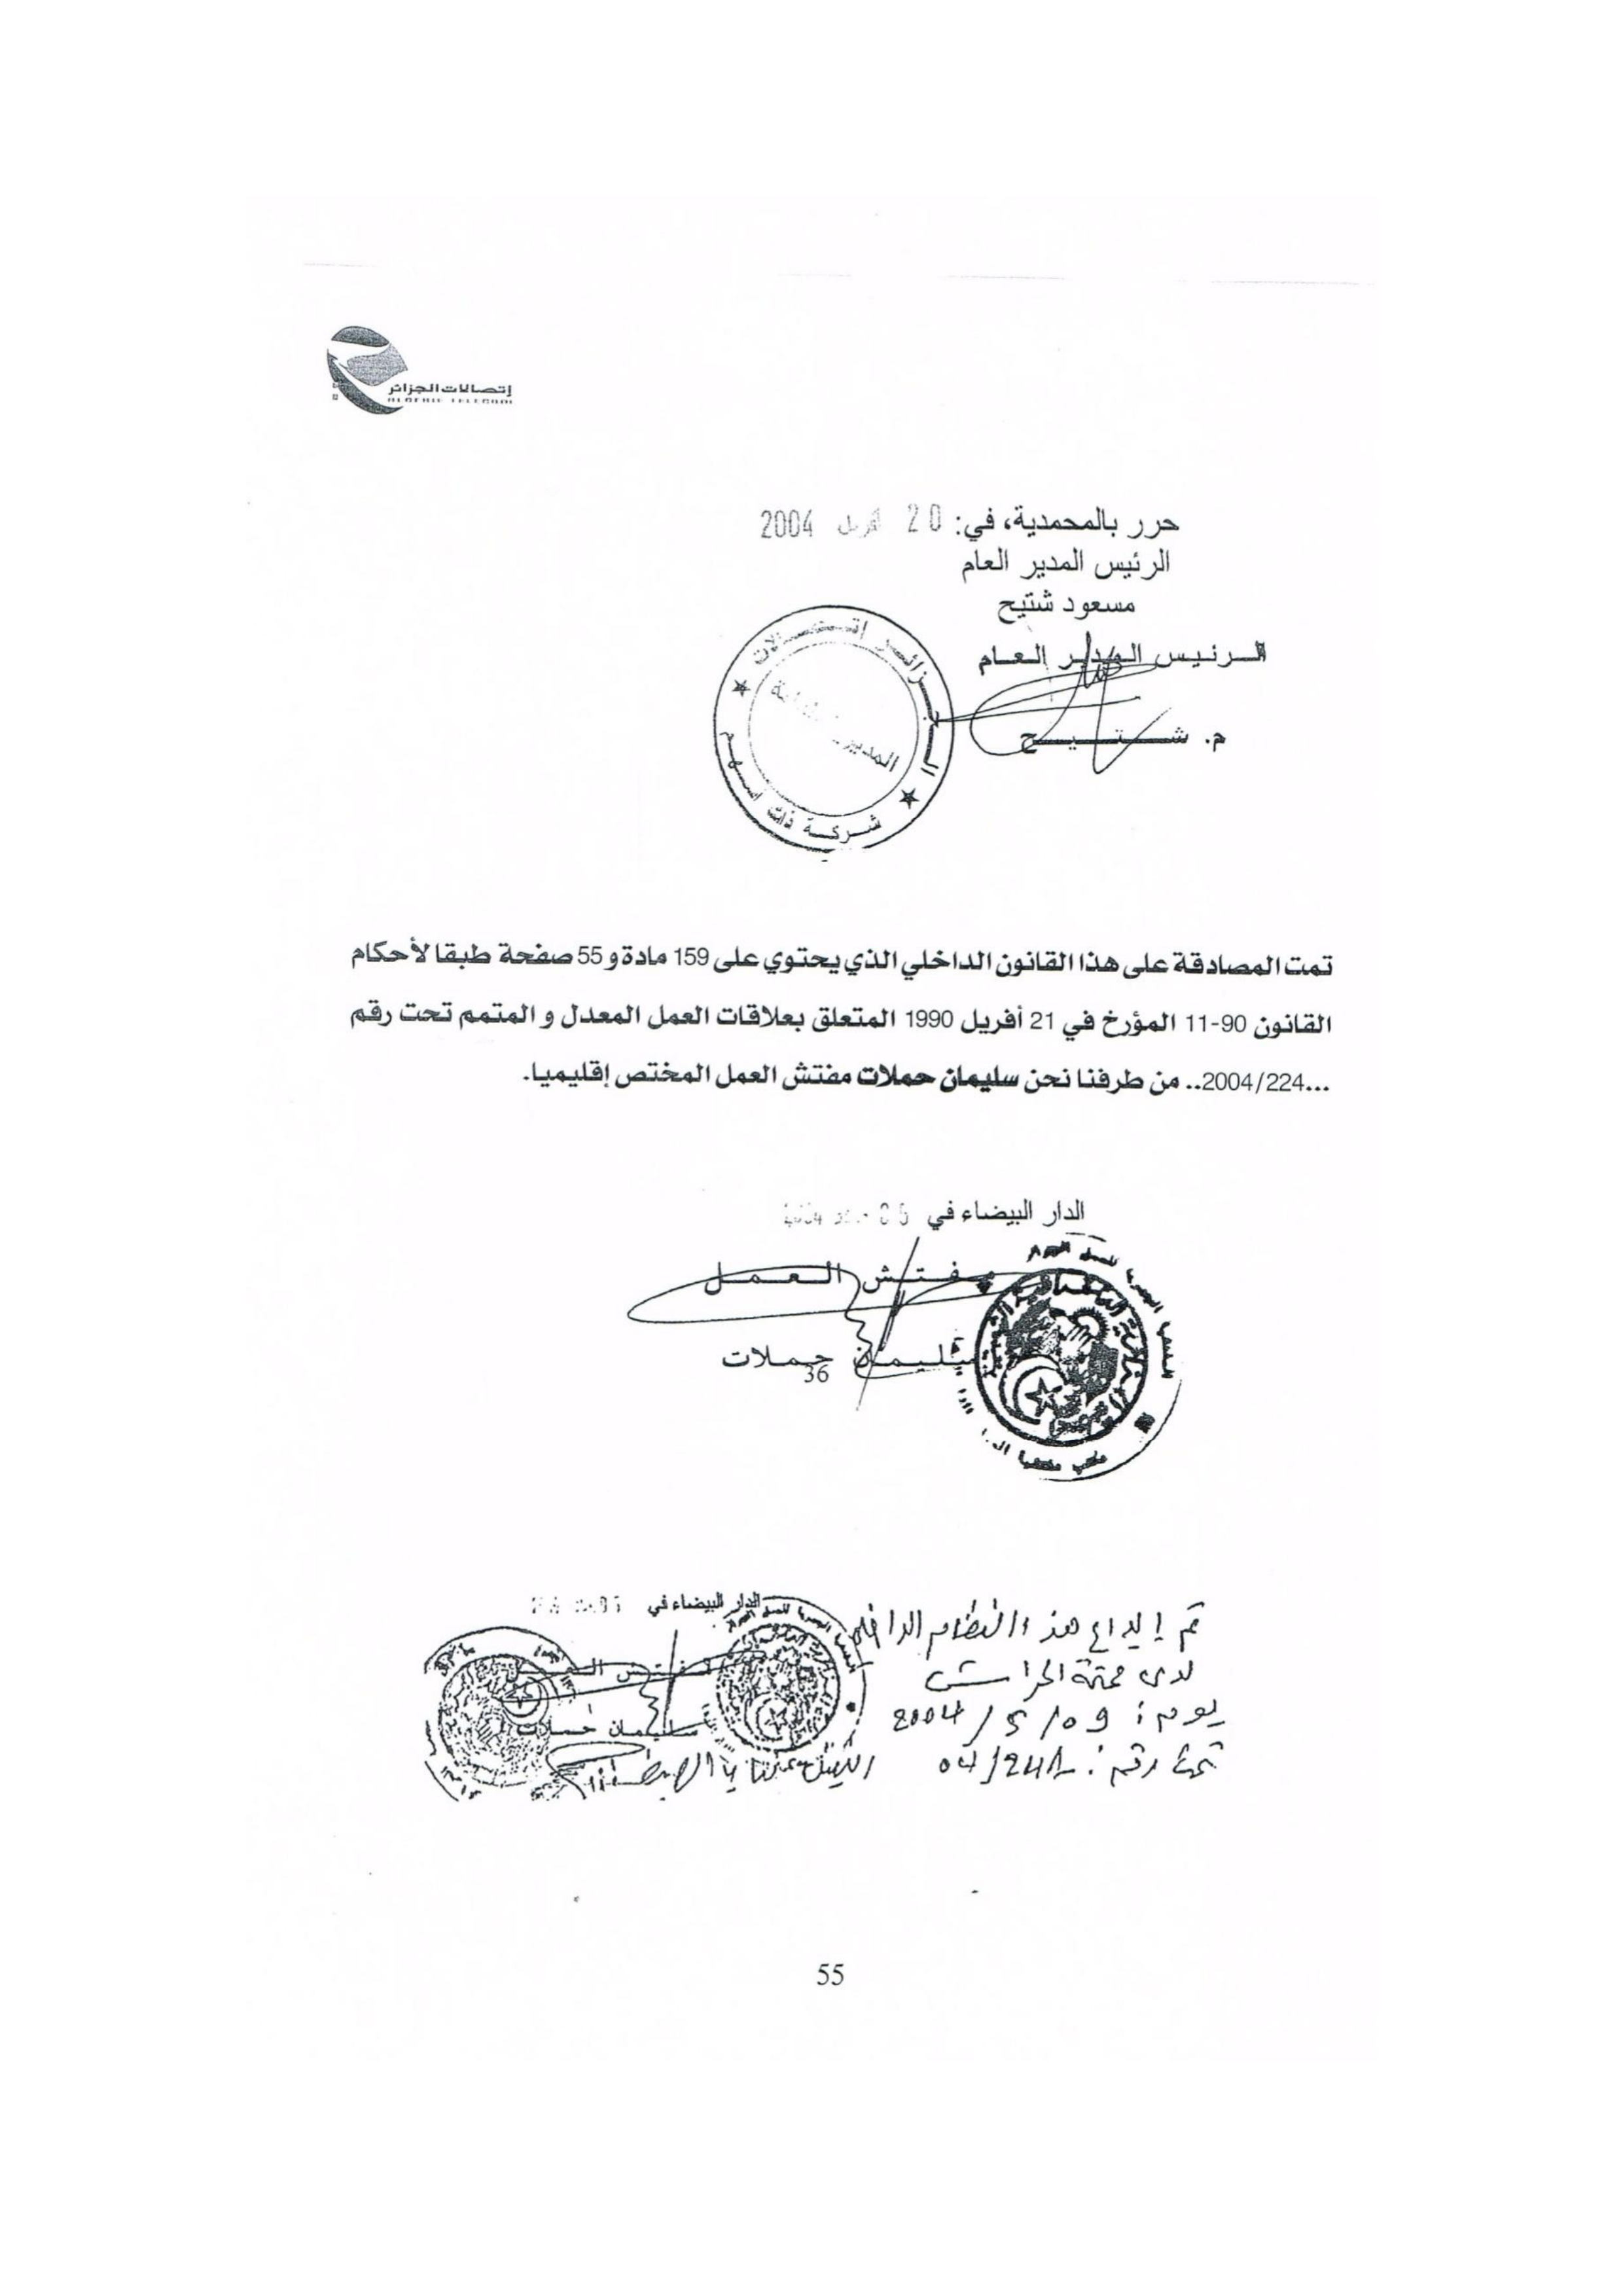 إتصالات الجزائر
ALGERIE TELECOM
حرر بالمحمدية، في: 20 أفريل 2004
الرئيس المدير العام
مسعود شتيح
الرئيس المدير العام
م. شتيح
الجزائر إتصالات
شركة ذات أسهم
تمت المصادقة على هذا القانون الداخلي الذي يحتوي على 159 مادة و 55 صفحة طبقا لأحكام
القانون 90-11 المؤرخ في 21 أفريل 1990 المتعلق بعلاقات العمل المعدل و المتمم تحت رقم
...2004/224.. من طرفنا نحن سليمان حملات مفتش العمل المختص إقليميا.
الدار البيضاء في
مفتش العمل
سليمان حملات
36
الدار البيضاء في
مفتش العمل
سليمان حملات
تم إيداع هذا النظام الداخلي
لدى محكمة الحراش
يوم: 09/5/2004
تحت رقم: 04/241
55